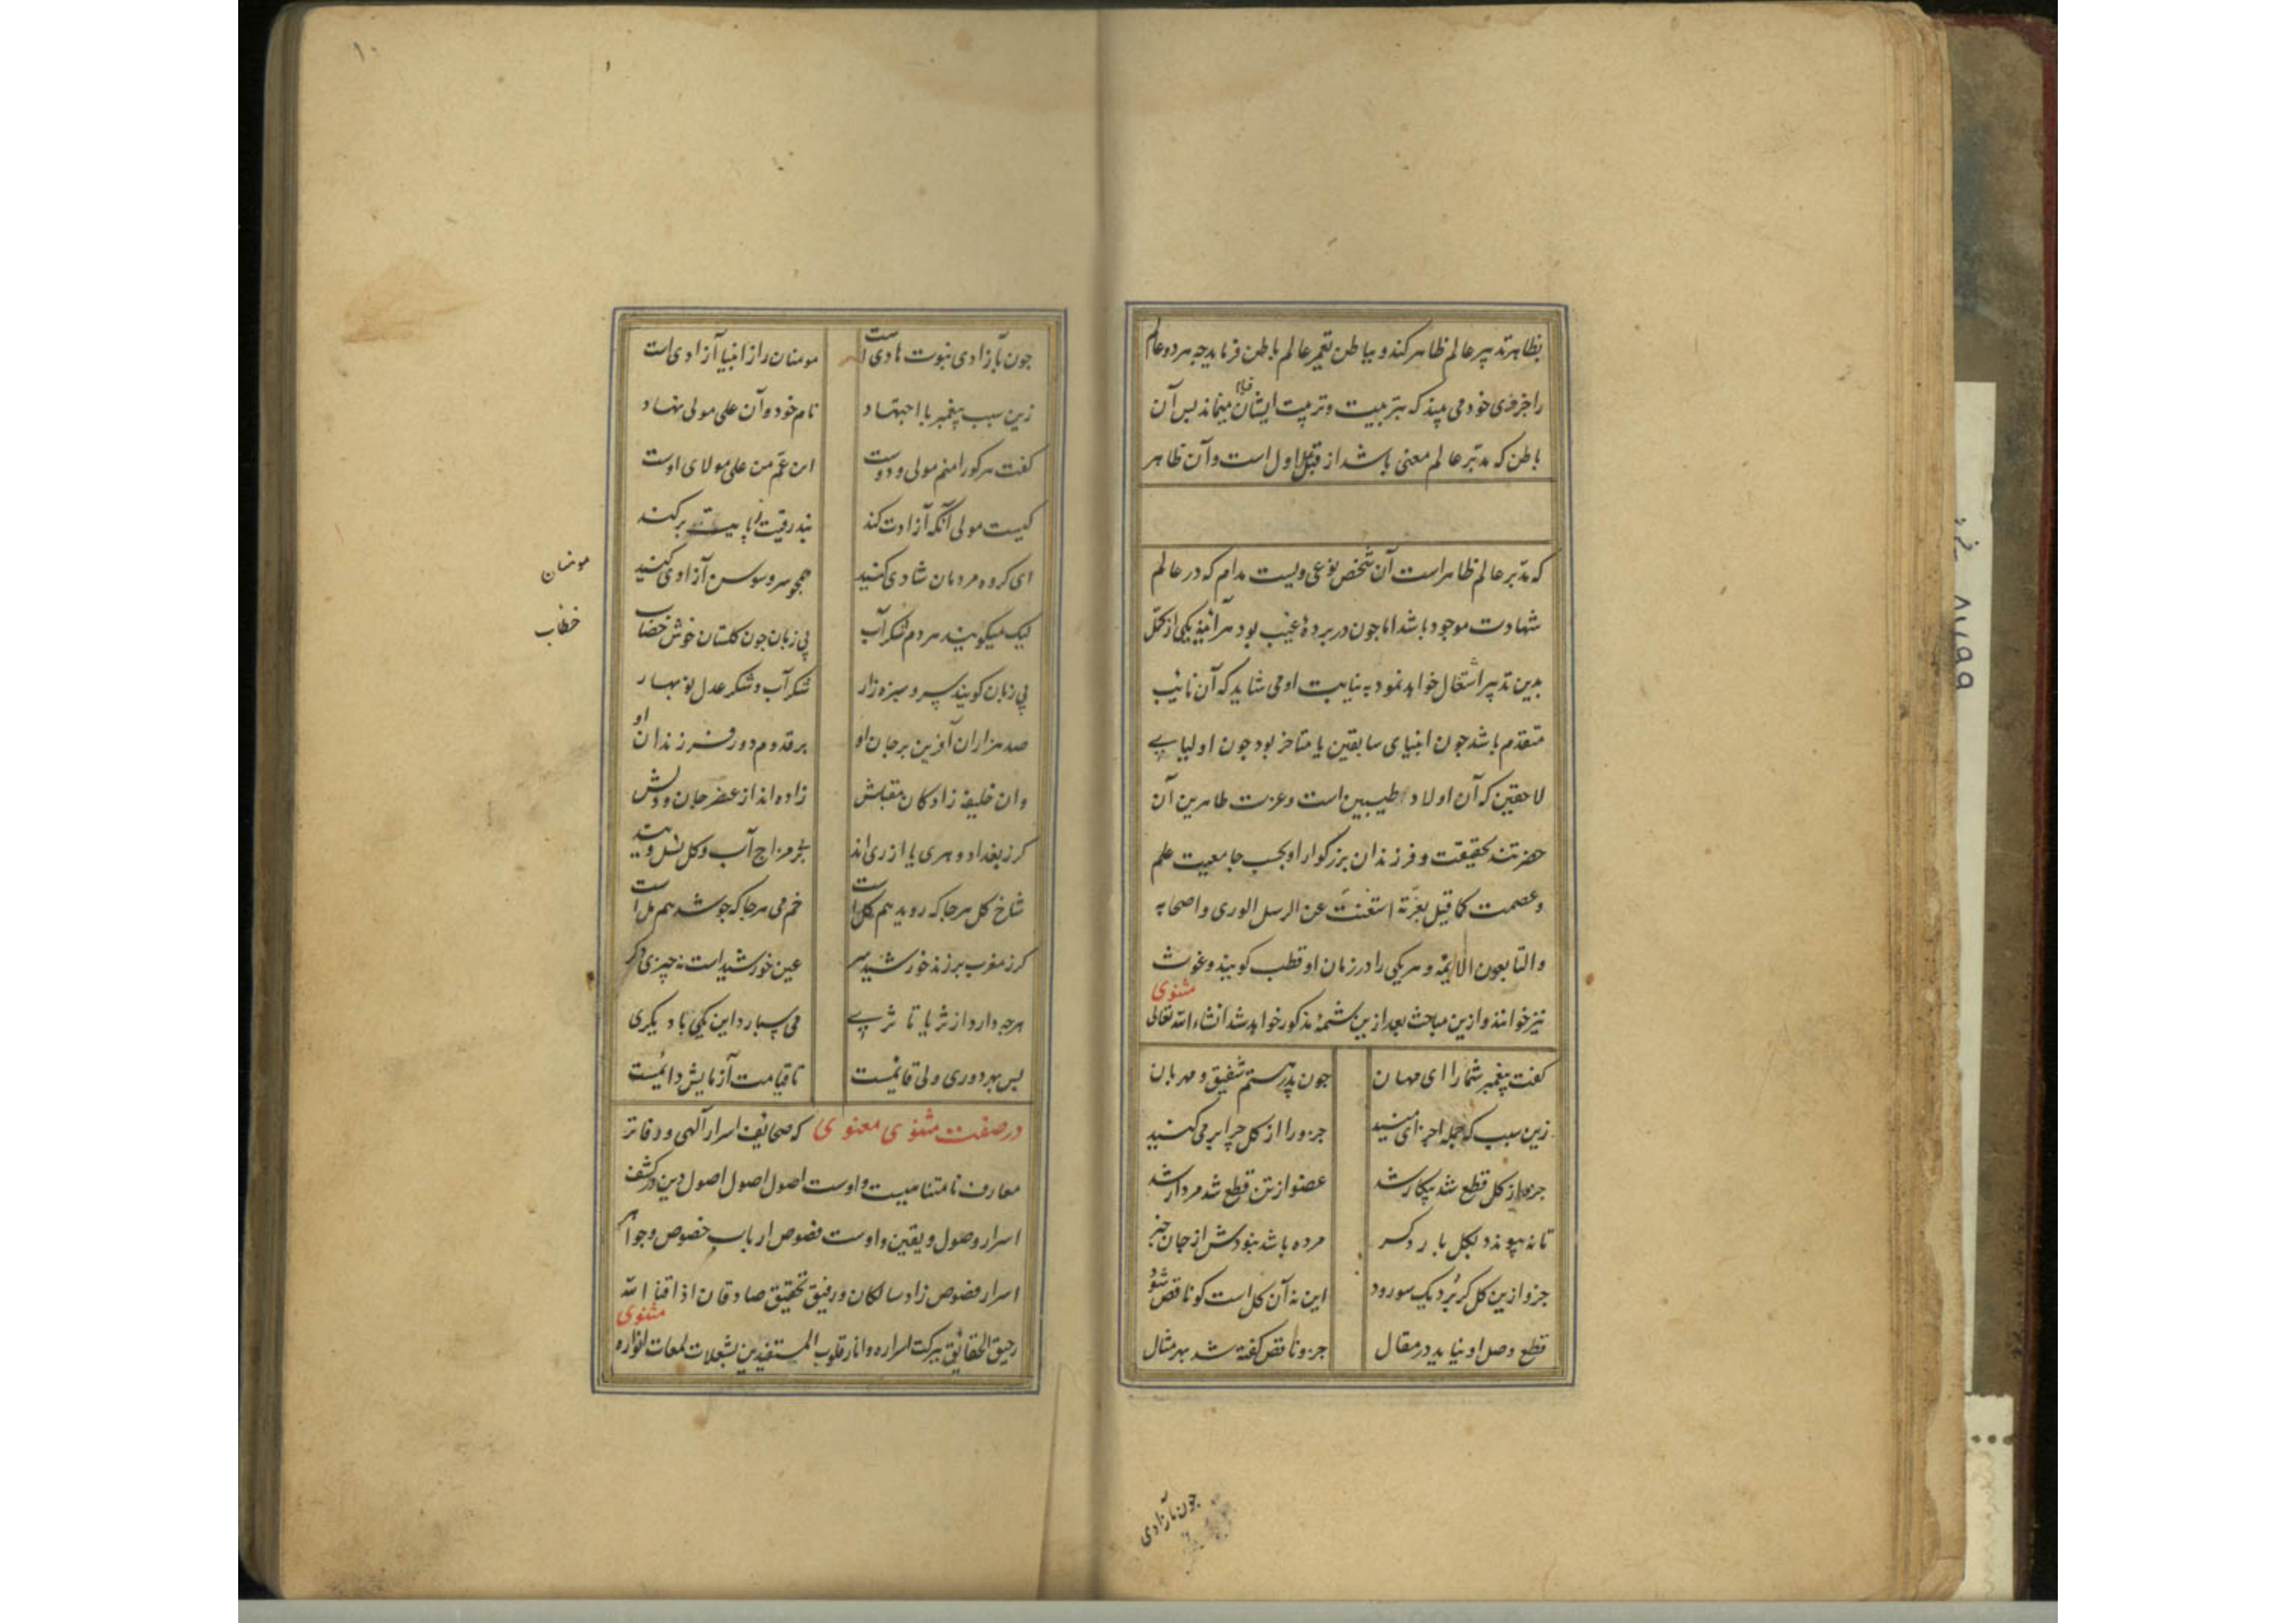 بظاهر تدبیر عالم ظاهر کند و بباطن تعمیر عالم باطن فرماید چه هر دو عالم
را جزوی خود می بیند که بتربیت و تربیت ایشان مینماند پس آن
باطن که مدبّر عالم معنی باشد از قبیل اول است و آن ظاهر
که مدبّر عالم ظاهر است آن شخص نوعی ویست مدام که در عالم
شهادت موجود باشد اما جون در پردهٔ غیب بود هرآینه یکی از کمّل
بدین تدبیر اشتغال خواهد نمود به نیابت او می شاید که آن نائب
متقدم باشد جون انبیای سابقین یا متاخر بود جون اولیای
لاحقین که آن اولاد طیبین است و عزت طاهرین آن
حضرتند بحقیقت و فرزندان بزرکوار او بحسب جامعیت علم
و عصمت کما قیل بعزّته استغنت عن الرسل الوری و اصحابه
و التابعون الائمّه و هر یکی را در زمان او قطب کویند و غوث
مثنوی
نیز خوانند و ازین مباحث بعد ازین شمهٔ مذکور خواهد شد انشاء الله تعالی
کفت پیغمبر شما را ای مهان جون پدر هستم شفیق و مهربان
زین سبب که جمله اجزای منید جزو را از کل چرا بر می کنید
جزو از کل قطع شد بیکار شد عضو از تن قطع شد مردار شد
تا نه پیوندد بکل بار دکر مرده باشد نبودش از جان خبر
جزو ازین کل کر برد یک سو رود این نه آن کل است کو ناقص شود
قطع و صل او نیاید در مقال جزو ناقص کفته شد بهر مثال
جون بآزادی
۱۰
جون بآزادی نبوت هادی است مومنان را ز انبیا آزادی است
زین سبب پیغمبر با اجتهاد نام خود و آن علی مولی نهاد
کفت هر کو را منم مولی و دوست ابن عمّ من علی مولای اوست
کیست مولی آنکه آزادت کند بند رقیت ز پایت بر کند
ای کروه مردمان شادی کنید همجو سرو و سوسن آزادی کنید
مومنان
لیک میکویید هر دم شکر آب بی زبان جون کلستان خوش خضاب
خطاب
بی زبان کویند سرو و سبزه زار شکر آب و شکر عدل نوبهار
صد هزاران آفرین بر جان او بر قدوم دور فرزندان او
وان خلیفه زادکان مقبلش زاده اند از عنصر جان و دلش
کر ز بغداد و هری یا از ری اند بی مزاج آب و کل نسل ویند
شاخ کل هر جا که روید هم کل است خم می هر جا که جوشد هم مل است
کر ز مغرب بر زند خورشید سر عین خورشید است نه چیزی دکر
هر جه دارد از ثریا تا ثری می سپارد این یکی با دیکری
پس بهر دوری ولی قائمست تا قیامت آزمایش دائمست
در صفت مثنوی معنوی که صحایف اسرار آلهی و دفاتر
معارف نامتناهیست و اوست اصول اصول اصول دین در کشف
اسرار وصول و یقین و اوست فصوص ارباب خصوص و جواهر
اسرار فصوص زاد سالکان و رفیق تحقیق صادقان اذاقنا الله
مثنوی
رحیق الحقائق ببرکت اسراره و انار قلوب المستفیدین بشعلات لمعات انواره
۸۷۹۹